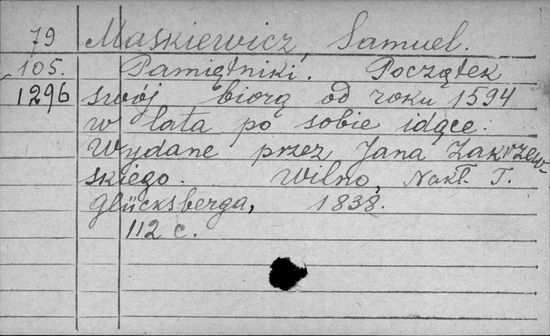 79 Maskiewicz, Samuel.
105. Pamiętniki. Początek
1296 swój biorą od roku 1594
w lata po sobie idące.
Wydane przez Jana Zakrzew-
skiego. Wilno, Nakł. T.
Glücksberga, 1838.
112 c.